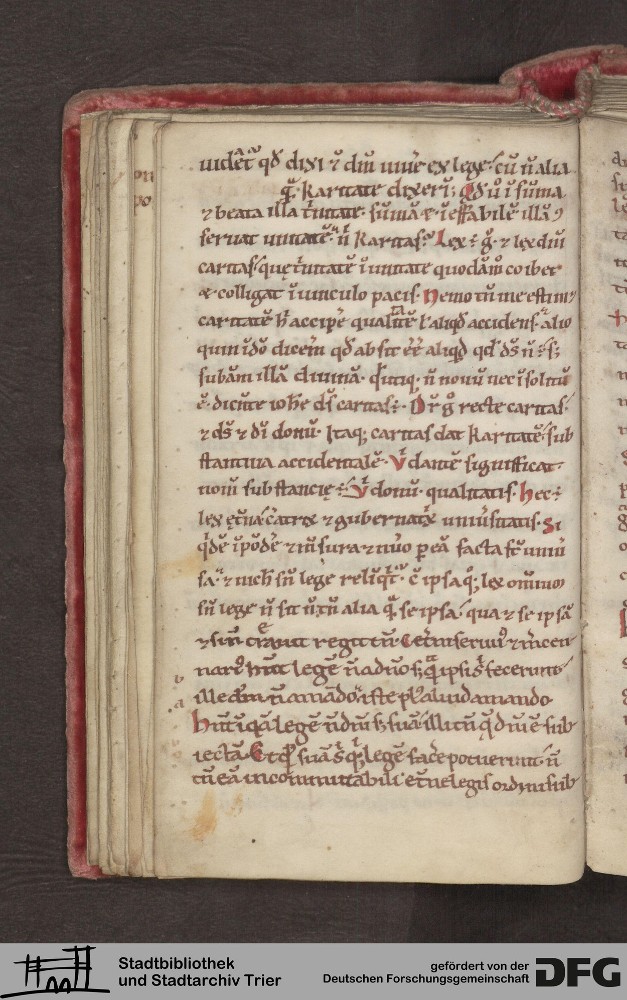 uidet̄ qd̄ dixi & dm̄ uiuere ex lege. cū ñ alia
q̄ Karitate dixerī. Qd̄ u̇ ī sūma
& beata illa t̄nitate sūmā & īeffabilē illā
seruat unitatē. ñ Karitas. Lex ē g̊ & lex dn̄i
caritas. quę t̄nitatē ī unitate quodāmo cohibet
& colligat ī uinculo pacis. Nemo tn̄ me estim&
caritatē h̄ accipe qualitatē l' aliqd̄ accidens. alio
quin ī dō dicerem qd̄ absit eē aliqd̄ qd' ds̄ ñ ē. s;
subam̄ illā diuinā. q̄ utiq; ñ nouū nec īsolitū
ē. dicente ioh̄e ds̄ caritas ē. Dr̄ g̊ recte caritas
& ds̄ & dī donū. Itaq; caritas dat Karitatē. sub
stantiua accidentalē. Vͥ dantē significat
nom̄ substancię ē. Vͥ donū qualitatis. Hec ē
lex ęt̄na creatrix & gubernatrix uniuersitatis. Si
q̄dē ī pōdere & m̄sura & nūo p eā facta s̄t uniū
sa. & nich' sn̄ lege relinq̄t̄. cū ipsa q̄q; lex omnium
sn̄ lege ñ sit. ñ tn̄ alia q̄ se ipsa. qua & se ipsā
& si ñ creauit regit tn̄. Ceterū seruus & m̄cen
narius hn̄t legē ñ a dn̄o s; quā ipsi s̄ fecerunt
b ille dm̄ ñ amādo. iste plus aliud amando
a Hn̄t īquā legē ñ dn̄i s; suā. illi tn̄ q̄ dn̄i ē sub
iectā. Et q̄dē suā s̄ q̄sq; legē facere potuerunt. ñ
tn̄ eā incommutabili et̄ne legis ordini sub
Stadtbibliothek
und Stadtarchiv Trier
gefördert von der
Deutschen Forschungsgemeinschaft
DFG